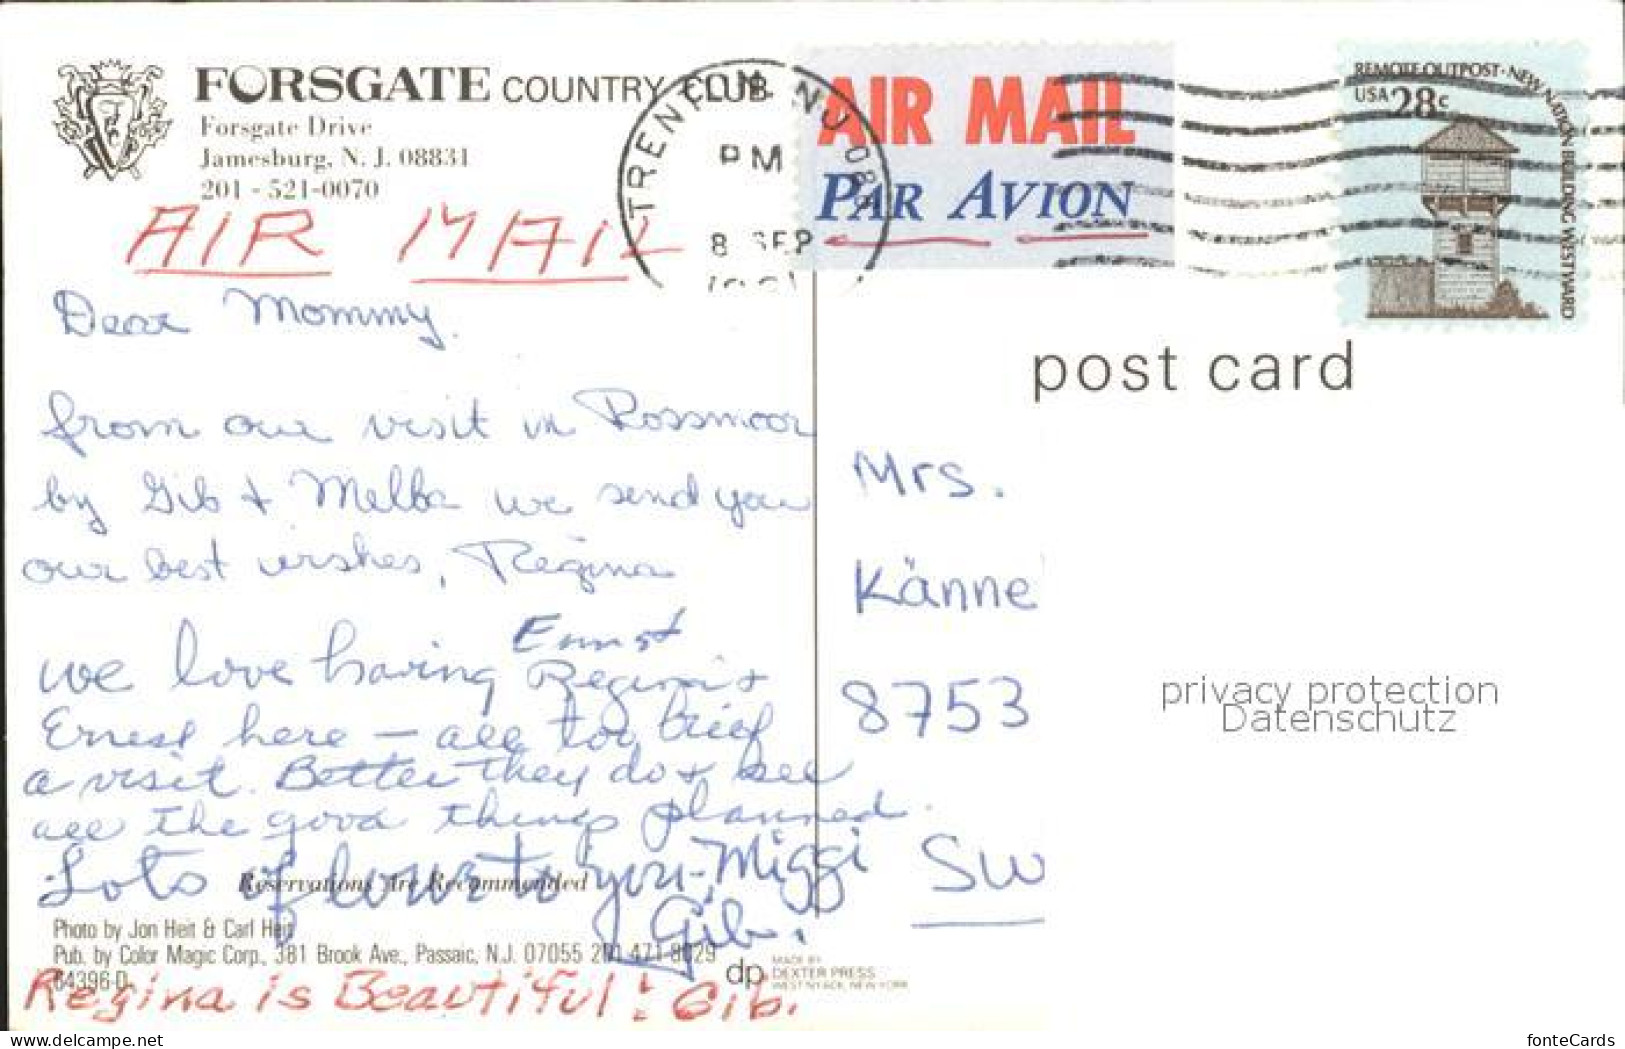 FORSGATE COUNTRY CLUB
Forsgate Drive
Jamesburg, N. J. 08831
201 - 521-0070
AIR MAIL
TRENTON, NJ 08
PM
8 SEP
AIR MAIL
PAR AVION
REMOTE OUTPOST · NEW NATION BUILDING WESTWARD
USA 28c
post card
Dear Mommy.
from our visit in Rossmoor
by Gib & Melba we send you
our best wishes, Regina
Ernst
we love having Regina &
Ernest here – all too brief
a visit. Better they do & see
all the good things planned.
Lots of love to you, Miggi
Gib.
Reservations Are Recommended
Photo by Jon Heit & Carl Heit
Pub. by Color Magic Corp., 381 Brook Ave., Passaic, N.J. 07055 201-471-8029
64396-D
dp
MADE BY
DEXTER PRESS
WEST NYACK, NEW YORK
Regina is Beautiful! Gib.
Mrs.
Känne
8753
SW
privacy protection
Datenschutz
www.delcampe.net
fonteCards